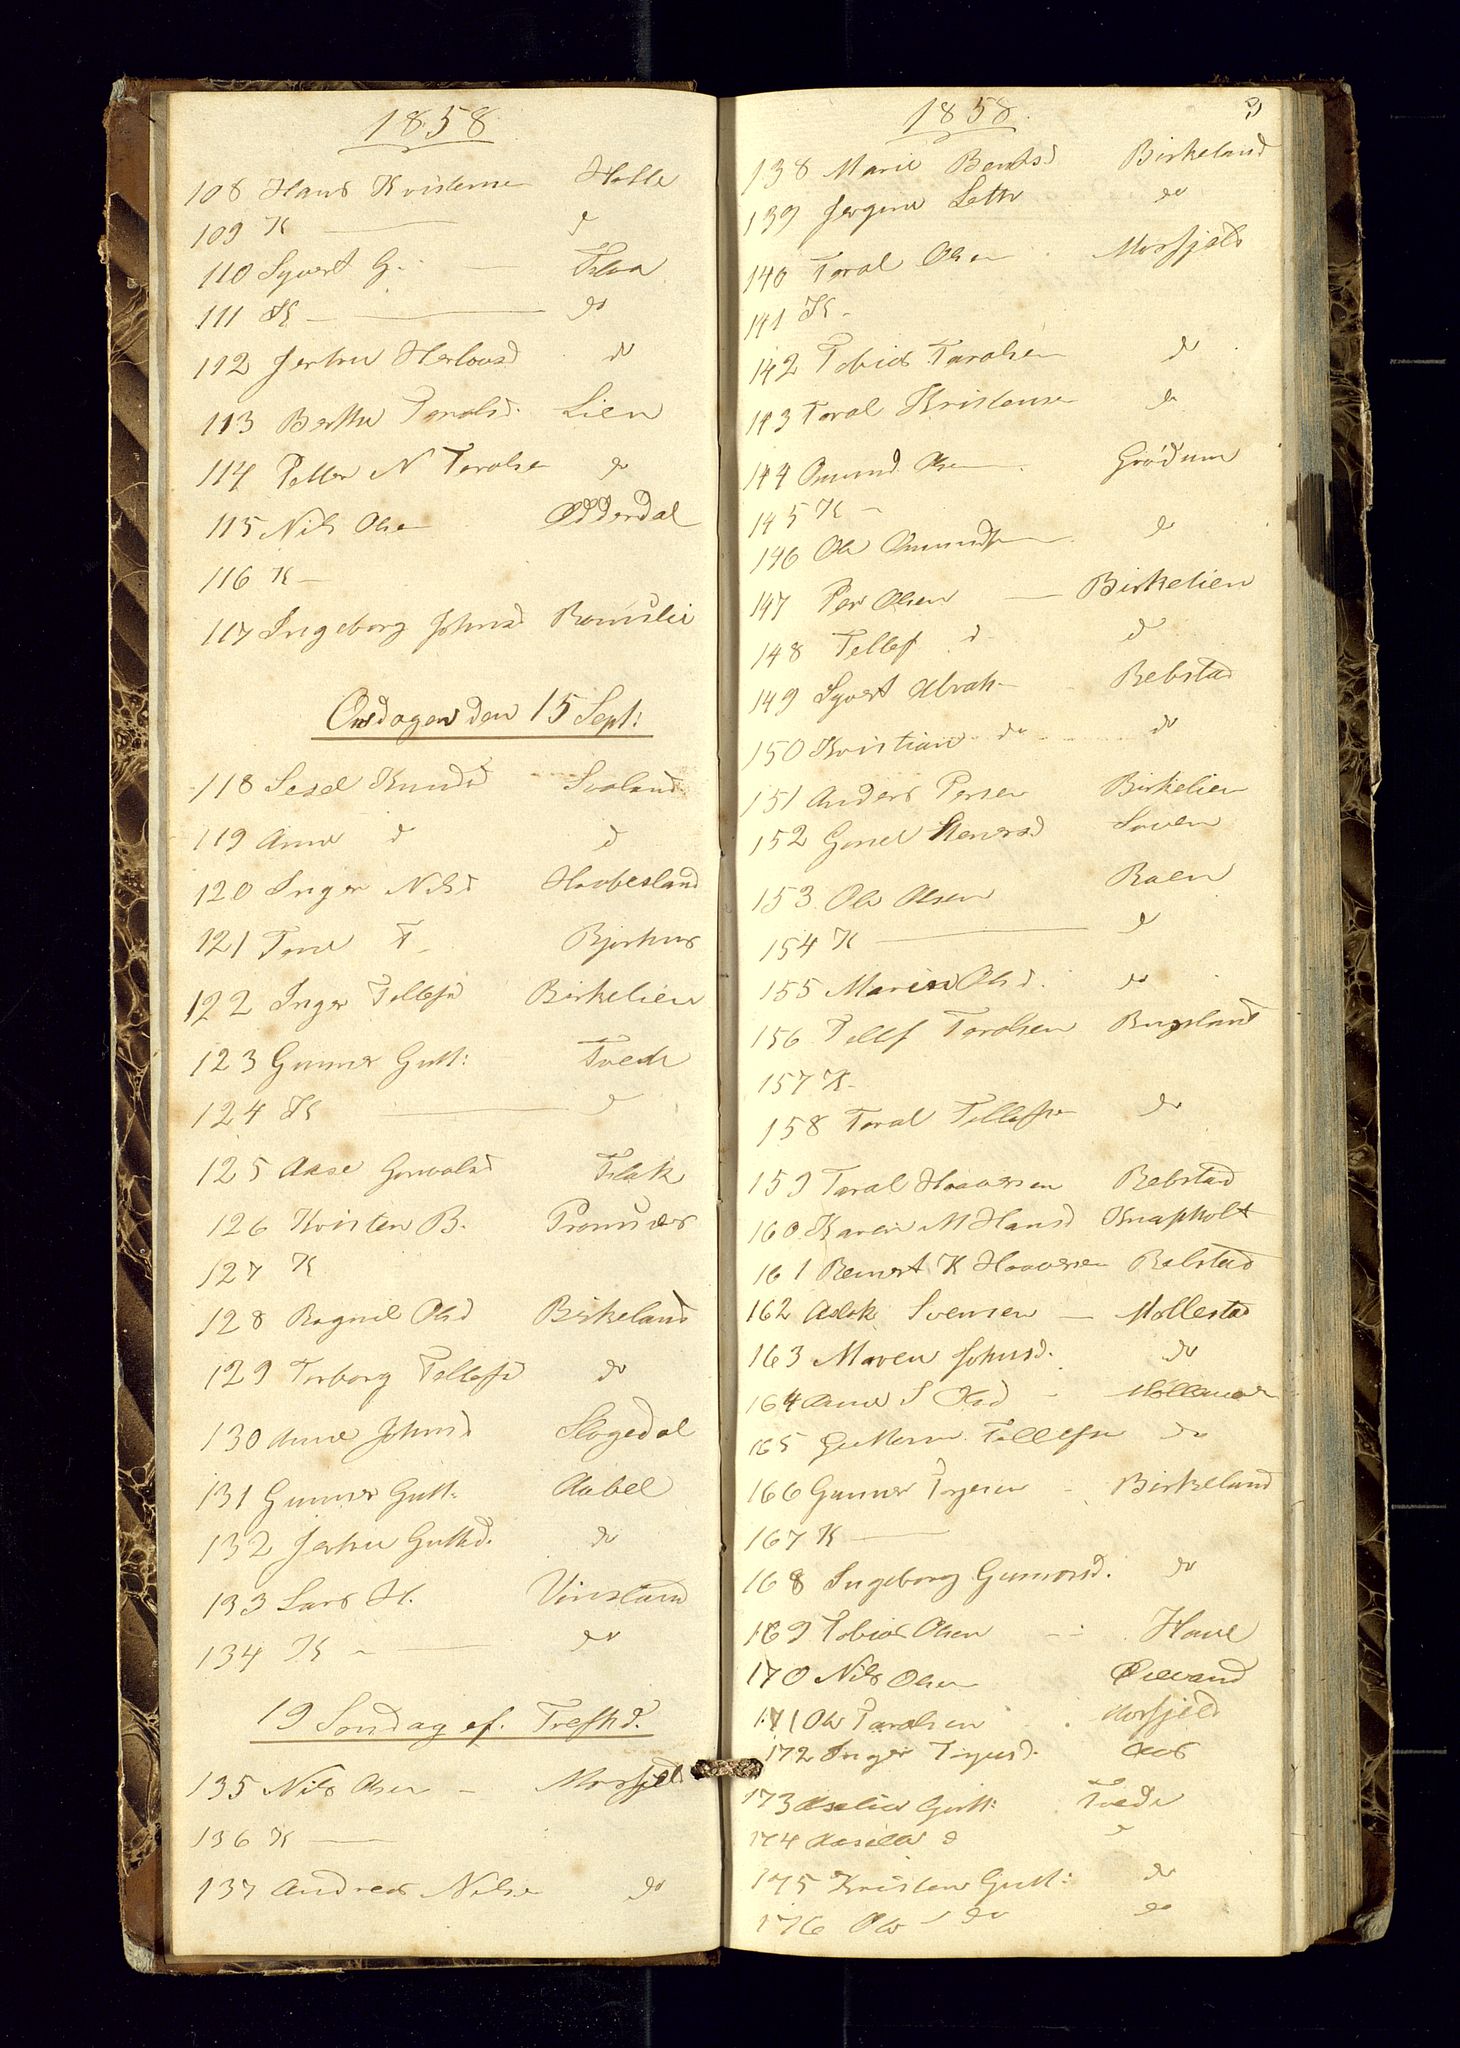 1858
108 Hans Kristense Holle
109 K — d
110 Syvert G. — Flaa
111 K — do
112 Jertru Herlovsd do
113 Berthe Taralsd. Lien
114 Petter N Taralse do
115 Nils Olse Odderdal
116 K —
117 Ingeborg Johnsd
Onsdagen den 15 Sept:
118 Sesel Knudsd Svaland
119 Anne d d
120 Inger Nilsd Haabesland
121 Tone T. Bjorhus
122 Inger Tellefsd Birkelien
123 Gunner Gutt: Tvede
124 K — d
125 Aase Gunvalsd Flak
126 Kristen B.
127 K
128 Ragnil Olsd Birkeland
129 Torborg Tellefsd do
130 Anne Johnsd Skogedal
131 Gunner Gutt. Aabel
132 Jertru Guttd. do
133 Lars H. Vinstand
134 K - — do
19 Sondag ef. Trefhd.
135 Nils Olsen — Mosfjeld
136 K —
137 Andreas Nilse do
1858. 3
138 Marie Bentsd Birkeland
139 Jorgine do
140 Taral Olsen Mosfjeld
141 K -
142 Tobias Taralsen do
143 Taral Kristensen do
144 Omund Olsen Grödum
145 K -
146 Ole Omundsen do
147 Per Olsen — Birkelien
148 Tellef d d
149 Syvert Abrah- Rebstad
150 Kristian do do
151 Anders Persen Birkelien
152 Gonel
153 Ole Olsen Raen
154 K — d
155 Maren Olsd. do
156 Tellef Taralsen Bugeland
157 K -
158 Taral Tellefse do
159 Taral Haaversen Rebstad
160 Karen M Hansd Knapholt
161 Reinert K Haaversen Rebstad
162 Aslak Svensen — Mollestad
163 Maren Johnsd. do
164 Anne S Olsd -
165 Guttorm Tellefse do
166 Gunner Torjesen - Birkeland
167 K —
168 Ingeborg Gunnersd. do
169 Tobias Olsen Have
170 Nils Olsen
171 Ole Taralsen Mosfjeld
172 Inger Torjusd. Aas
173 Gutt: Tvede
174 d d
175 Kristen Gutt: do
176 Ole - do do